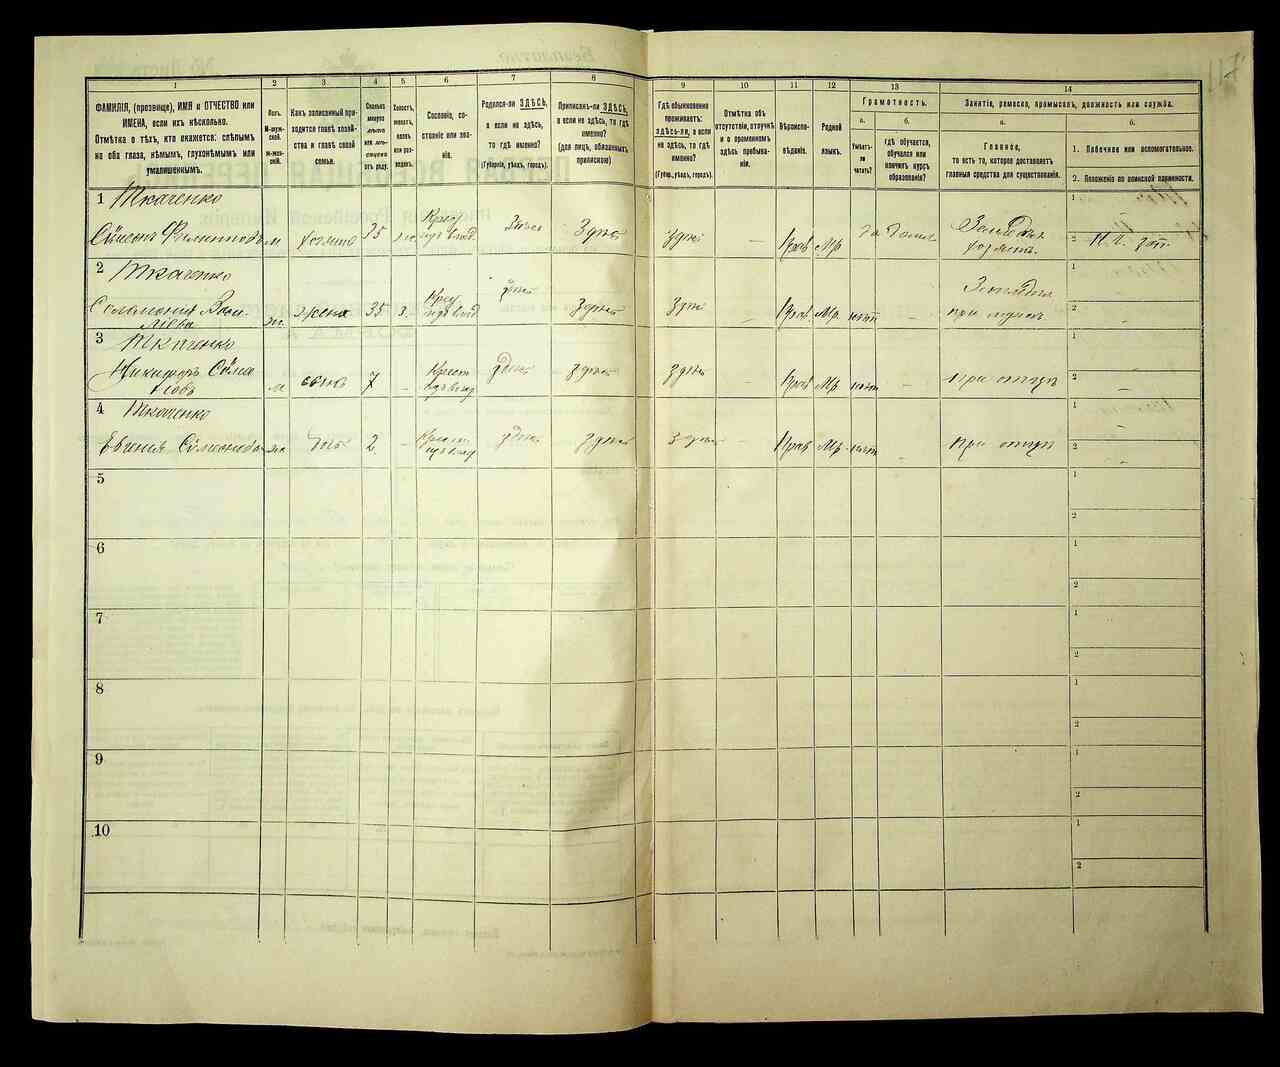 1 2 3 4 5 6 7 8
ФАМИЛІЯ, (прозвище), ИМЯ и ОТЧЕСТВО или ИМЕНА, если ихъ нѣсколько.
Отмѣтка о тѣхъ, кто окажется: слѣпымъ на оба глаза, нѣмымъ, глухонѣмымъ или умалишеннымъ.
Полъ.
М-мужской.
Ж-женскій.
Какъ записанный приходится главѣ хозяйства и главѣ своей семьи.
Сколько минуло лѣтъ или мѣсяцевъ отъ роду.
Холостъ, женатъ, вдовъ или разведенъ.
Сословіе, состояніе или званіе.
Родился-ли ЗДѢСЬ, а если не здѣсь, то гдѣ именно?
(Губернія, уѣздъ, городъ).
Приписанъ-ли ЗДѢСЬ, а если не здѣсь, то гдѣ именно?
(для лицъ, обязанныхъ припискою)
9 10 11 12 13 14
Гдѣ обыкновенно проживаетъ: здѣсь-ли, а если не здѣсь, то гдѣ именно?
(Губер., уѣздъ, городъ).
Отмѣтка объ отсутствіи, отлучкѣ и о временномъ здѣсь пребываніи.
Вѣроисповѣданіе.
Родной языкъ.
Грамотность.
а.
Умѣетъ-ли читать?
б.
гдѣ обучается, обучался или кончилъ курсъ образованія?
Занятіе, ремесло, промыселъ, должность или служба.
а.
Главное,
то есть то, которое доставляетъ главныя средства для существованія.
б.
1. Побочное или вспомогательное.
2. Положеніе по воинской повинности.
1 Ткаченко
м хозяинъ 35 Крест здѣсь здѣсь здѣсь — Прав Мр. да Земледѣл хозяинъ
1
2
2 Ткаченко
Соломонія Васильева ж жена 35 з. здѣсь здѣсь здѣсь — Прав. Мр. нѣтъ — Земледѣл при мужѣ
1
2 —
3 Ткаченко
Никифоръ м сынъ 7 — Крест здѣсь здѣсь здѣсь Прав Мр. нѣтъ — при отцѣ
2 —
4 Ткаченко
Евгенія ж дочь 2 — Крест здѣсь здѣсь здѣсь — Прав Мр. нѣтъ — при отцѣ
1 —
2 —
5
1
2
6
1
2
7
1
2
8
1
2
9
1
2
10
1
2